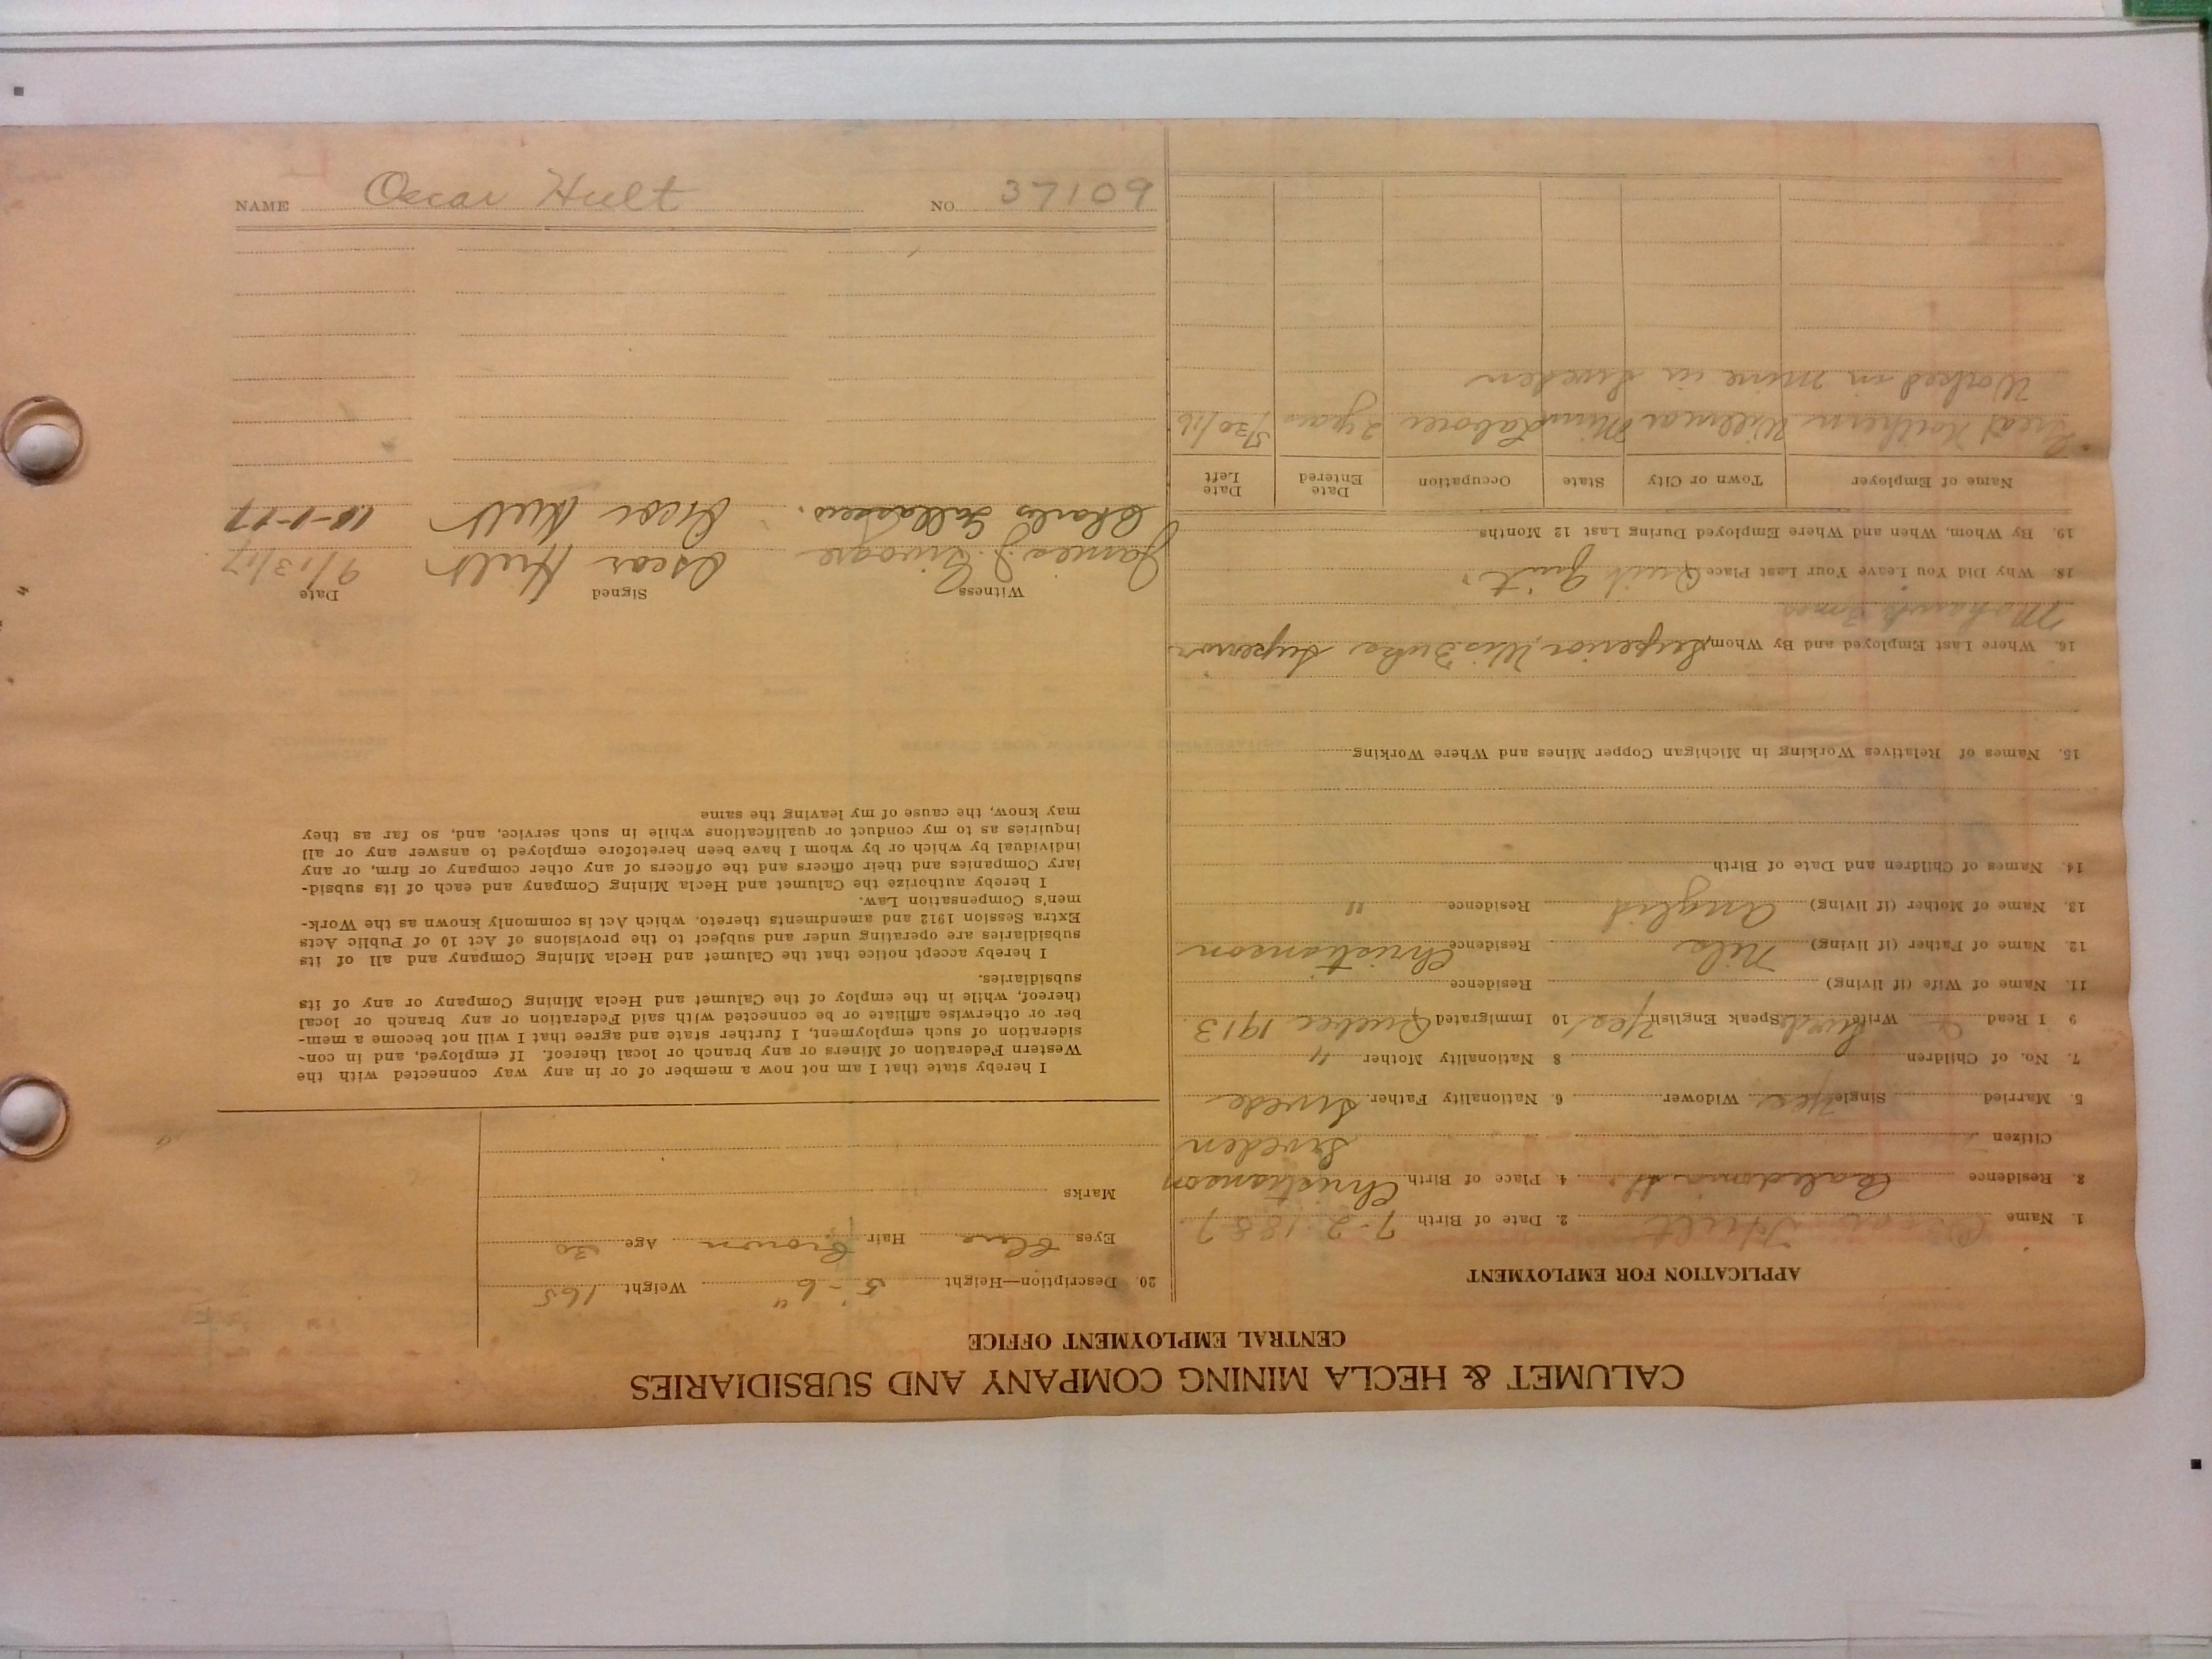 CALUMET & HECLA MINING COMPANY AND SUBSIDIARIES
CENTRAL EMPLOYMENT OFFICE
APPLICATION FOR EMPLOYMENT
1. Name Oscar Hult 2. Date of Birth 7-2-1887
3. Residence Caledonia St. 4. Place of Birth Christianson
Citizen Sweden
5. Married Single Yes Widower 6. Nationality Father Swede
7. No. of Children 8 Nationality Mother "
9 I Read Write Swede Speak English Yes 10 Immigrated Quebec 1913
11. Name of Wife (if living) Residence
12. Name of Father (if living) Nils Residence Christianson
13. Name of Mother (if living) Residence "
14. Names of Children and Date of Birth
15. Names of Relatives Working in Michigan Copper Mines and Where Working
16. Where Last Employed and By Whom Superior, Wis Superior
Mohawk
18. Why Did You Leave Your Last Place Quit
19. By Whom, When and Where Employed During Last 12 Months
Name of Employer Town or City State Occupation Date Entered Date Left
Great Northern Willmar Minn Laborer 2 years 5/30/16
Worked in mine in Sweden
20. Description—Height 5'-6" Weight 165
Eyes Blue Hair Brown Age 30
Marks
I hereby state that I am not now a member of or in any way connected with the
Western Federation of Miners or any branch or local thereof. If employed, and in con-
sideration of such employment, I further state and agree that I will not become a mem-
ber or otherwise affiliate or be connected with said Federation or any branch or local
thereof, while in the employ of the Calumet and Hecla Mining Company or any of its
subsidiaries.
I hereby accept notice that the Calumet and Hecla Mining Company and all of its
subsidiaries are operating under and subject to the provisions of Act 10 of Public Acts
Extra Session 1912 and amendments thereto. which Act is commonly known as the Work-
men's Compensation Law.
I hereby authorize the Calumet and Hecla Mining Company and each of its subsid-
iary Companies and their officers and the officers of any other company or firm, or any
individual by which or by whom I have been heretofore employed to answer any or all
inquiries as to my conduct or qualifications while in such service, and, so far as they
may know, the cause of my leaving the same
Witness Signed Date
James J. Oscar Hult 9/13/17
Charles Oscar Hult 10-1-17
NAME Oscar Hult NO. 37109